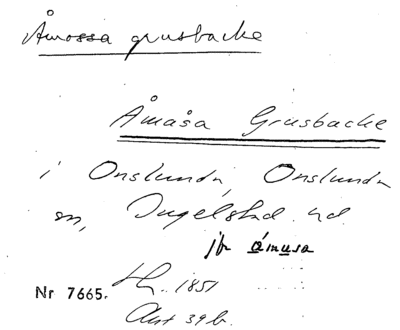 Åmossa grusbacke
Åmåsa Grusbacke
i Onslunda, Onslunda
sn, Ingelstad hd.
jfr ámusa
Nr 7665. 1851
Akt 39 b.